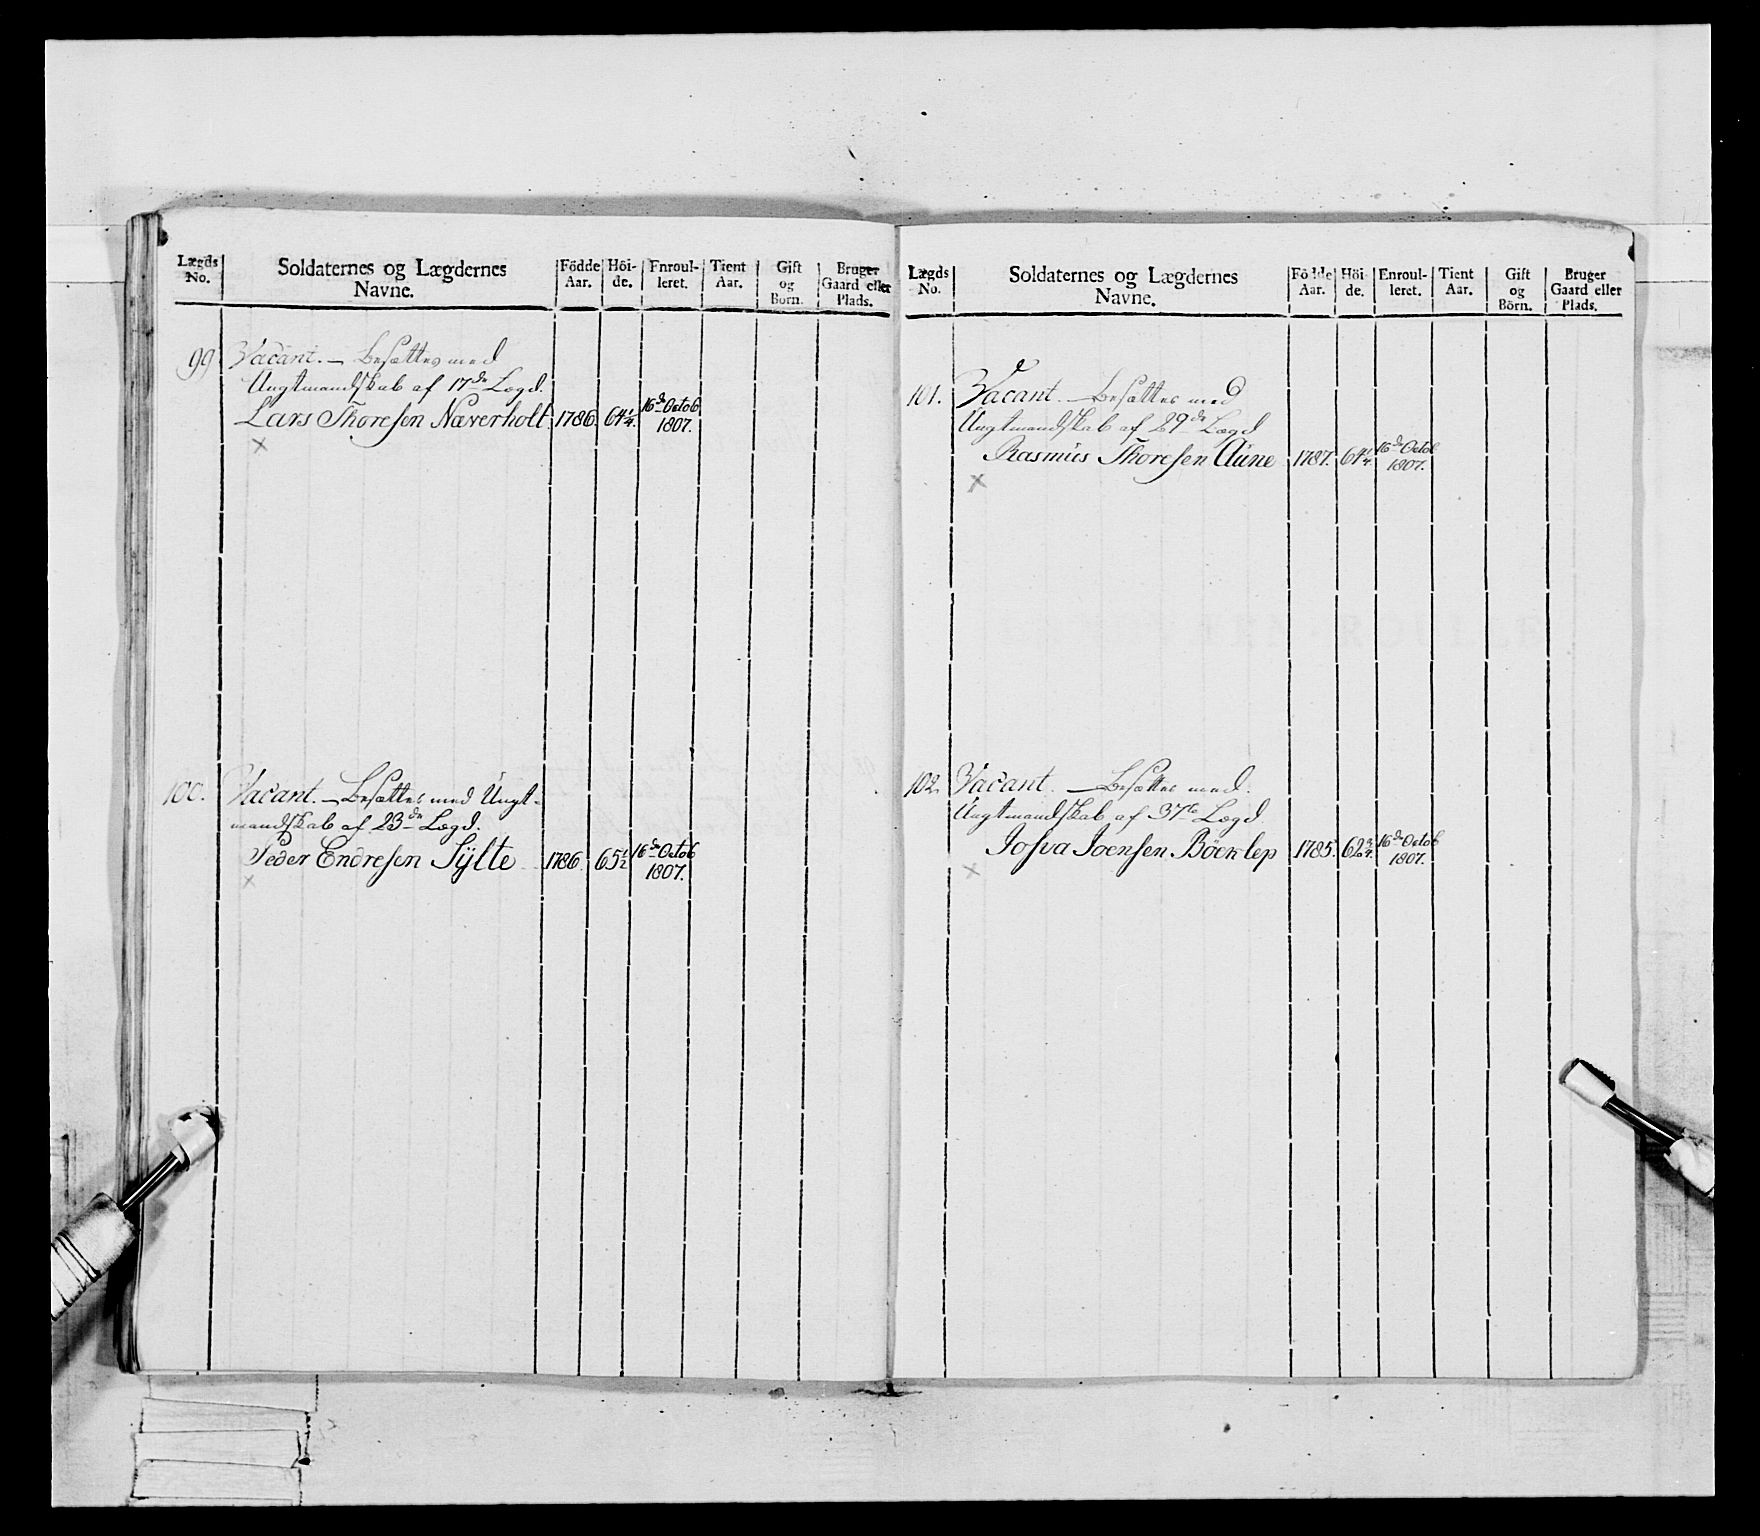 Lægds No. | Soldaternes og Lægdernes Navne. | Födde Aar. | Höi- de. | Enroul- leret. | Tient Aar. | Gift og Börn. | Bruger Gaard eller Plads.
99 Vacant. – Besættes med
Ungtmandskab af 17de Lægd.
Lars Thoresen Næverholt. 1786. 64 1/4. 16de Octob 1807.
×
100. Vacant. – Besættes med Ungt-
mandskab af 23de Lægd.
Peder Endresen Sÿlte 1786. 65 1/2 16de Octob 1807.
×
Lægds No. | Soldaternes og Lægdernes Navne. | Födde Aar. | Höi- de. | Enroul- leret. | Tient Aar. | Gift og Börn. | Bruger Gaard eller Plads.
101. Vacant. – Besættes med
Ungtmandskab af 29de Lægd
Rasmus Thoresen Aune 1787. 64 1/4. 16de Octob 1807.
×
102. Vacant. – Besættes med.
Ungtmandskab af 37te Lægd.
Josva Joensen 1785. 62 3/4. 16de Octob 1807.
×